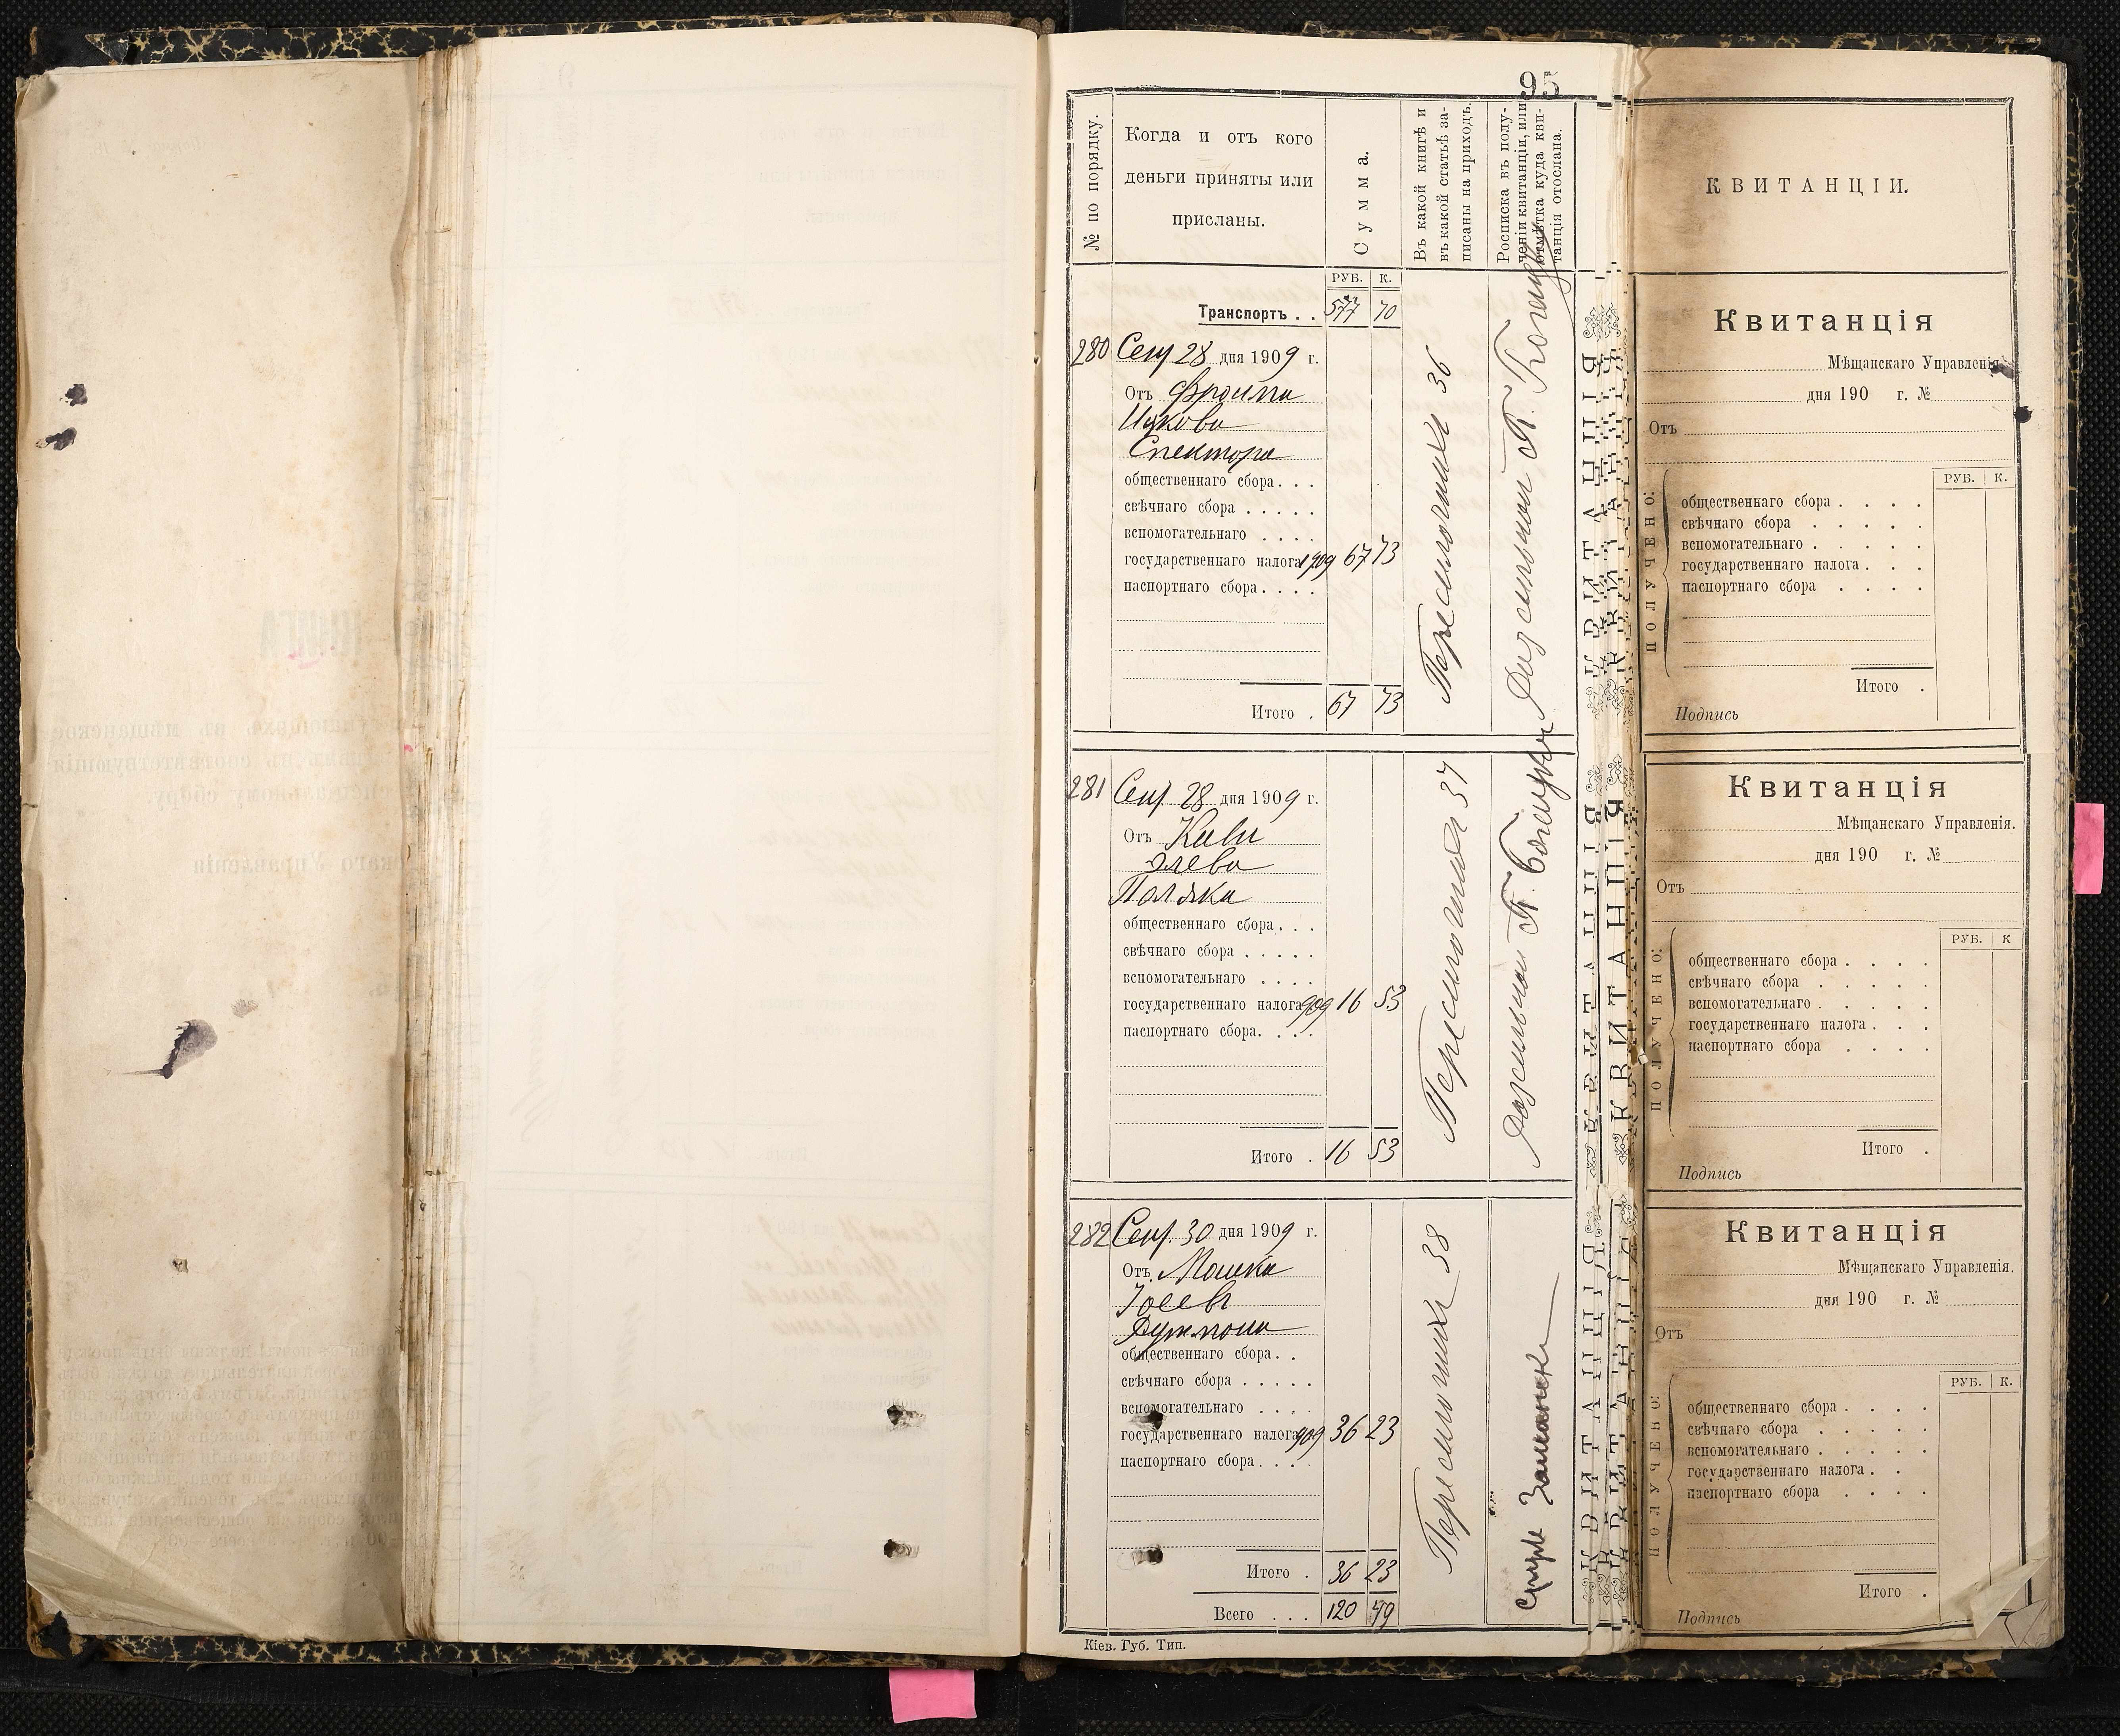 95
№ по порядку.
Когда и отъ кого
деньги приняты или
присланы.
Сумма.
Въ какой книгѣ и
въ какой статьѣ за-
писаны на приходъ.
Росписка въ полу-
ченіи квитанціи, или
отмѣтка куда кви-
танція отослана.
РУБ. К.
Транспортъ . . 577 70
280 Сент 28 дня 1909 г.
Отъ Фроима
Ицкова
Спектора
общественнаго сбора . . .
свѣчнаго сбора . . . . .
вспомогательнаго . . . .
государственнаго налога 1909 67 73
паспортнаго сбора . . . .
Итого . 67 73
36
281 Сент 28 дня 1909 г.
Отъ Киви
Элева
Поляка
общественнаго сбора . . .
свѣчнаго сбора . . . . .
вспомогательнаго . . . .
государственнаго налога 909 16 53
паспортнаго сбора . . . .
Итого . 16 53
37
282 Сент. 30 дня 1909 г.
Отъ Мошка
Іосев
общественнаго сбора . .
свѣчнаго сбора . . . . .
вспомогательнаго . . . .
государственнаго налога 909 36 23
паспортнаго сбора . . . .
Итого . 36 23
Всего . . . 120 49
38
Кіев. Губ. Тип.
КВИТАНЦІЯ
КВИТАНЦІЯ
КВИТАНЦІЯ
КВИТАНЦІИ.
Квитанція
Мѣщанскаго Управленія.
дня 190 г. №
Отъ
РУБ. К.
ПОЛУЧЕНО:
общественнаго сбора . . . .
свѣчнаго сбора . . . . .
вспомогательнаго . . . . .
государственнаго налога . . .
паспортнаго сбора . . . .
Итого .
Подпись
Квитанція
Мѣщанскаго Управленія.
дня 190 г. №
Отъ
РУБ. К
ПОЛУЧЕНО:
общественнаго сбора . . . .
свѣчнаго сбора . . . . .
вспомогательнаго . . . . .
государственнаго налога . . .
паспортнаго сбора . . . .
Итого .
Подпись
Квитанція
Мѣщанскаго Управленія.
дня 190 г. №
Отъ
РУБ. К.
ПОЛУЧЕНО:
общественнаго сбора . . . .
свѣчнаго сбора . . . . .
вспомогательнаго . . . . .
государственнаго налога . . .
паспортнаго сбора . . . .
Итого .
Подпись